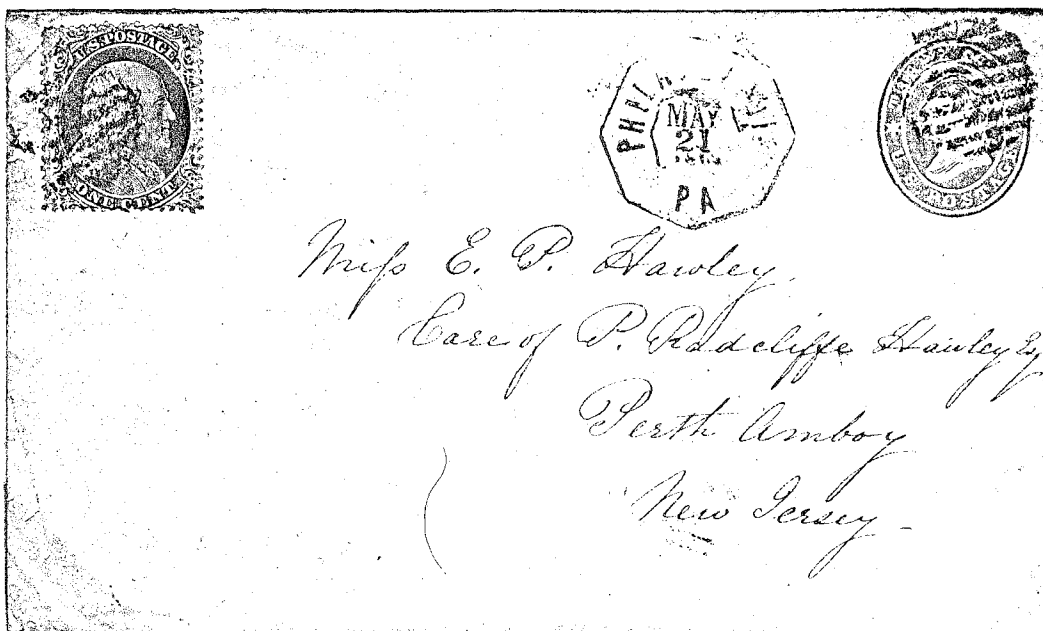 U.S. POSTAGE
ONE CENT
MAY
21
PA
POSTAGE
Miss E. P. Hawley
Care of P. Radcliffe Hawley Esq
Perth Amboy
New Jersey -